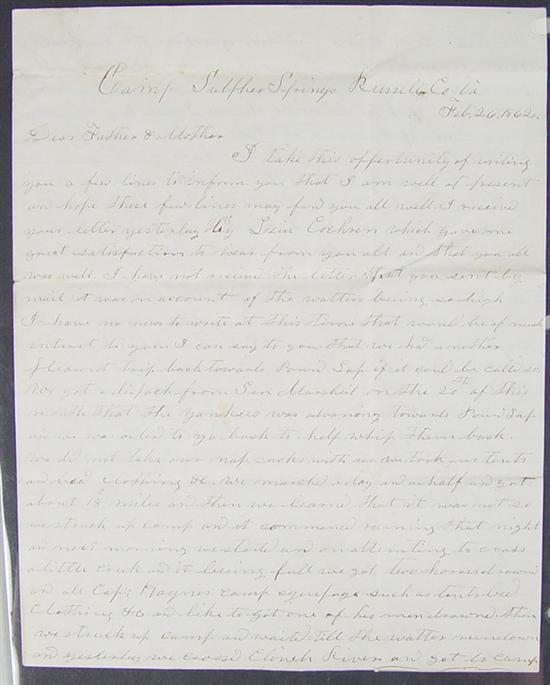 Camp Sulpher Springs Russell Co Va
Feb. 26. 1862.
Dear Father & Mother
I take this oppertunity of writing
you a few lines to inform you that I am well at present
an hope these few lines may find you all well. I receive
your letter yesterday by Cochren which gave me
great satisfaction to hear from you all an that you all
was well. I have not receive the letter that you sent by
mail it was on account of the watters being so high
I have no news to write at this time that would be of much
intrust to you. I can say to you that we had a nother
pleasent trip back towards Pound Gap if it coul be called so.
We got a dispach from Gen Marshel on the 20th of this
month that the Yankees was advancing towards Poun Gap
an we was orded to go back to help whip them back.
We did not take our nap sacks with us we took our tents
an bed clothing &c. We marched a day an a half an got
about 18 miles and then we learned that it was not so
we struck up camp an it commenced raining that night
an next morning we started an on attempting to cross
a little creek an it being full we got two horses drowned
an all Capt Haynes camp equipage such as tents bed
clothing &c an like to got one of his men drowned then
we struck up camp and waited till the watter run down
an yesterday we crossed Clinch River an got to camp